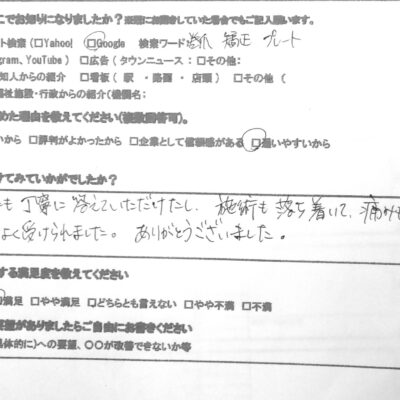 こでお知りになりましたか?※既にお聞きしていた場合でもご記入願います。
ト検索(□Yahoo! □Google 検索ワード 巻爪 矯正 プレート
gram、YouTube ) □広告(タウンニュース:□その他:
知人からの紹介 □看板( 駅 ・ 路面 ・ 店頭 ) □その他(
福祉施設・行政からの紹介(機関名:
めた理由を教えてください(複数回答可)。
いから □評判がよかったから □企業として信頼感がある □通いやすいから
けてみていかがでしたか?
も丁寧に答えていただけたし、施術も落ち着いて、痛みも
よく受けられました。ありがとうございました。
する満足度を教えてください
満足 □やや満足 □どちらとも言えない □やや不満 □不満
要望がありましたらご自由にお書きください
具体的に)への要望、〇〇が改善できないか等